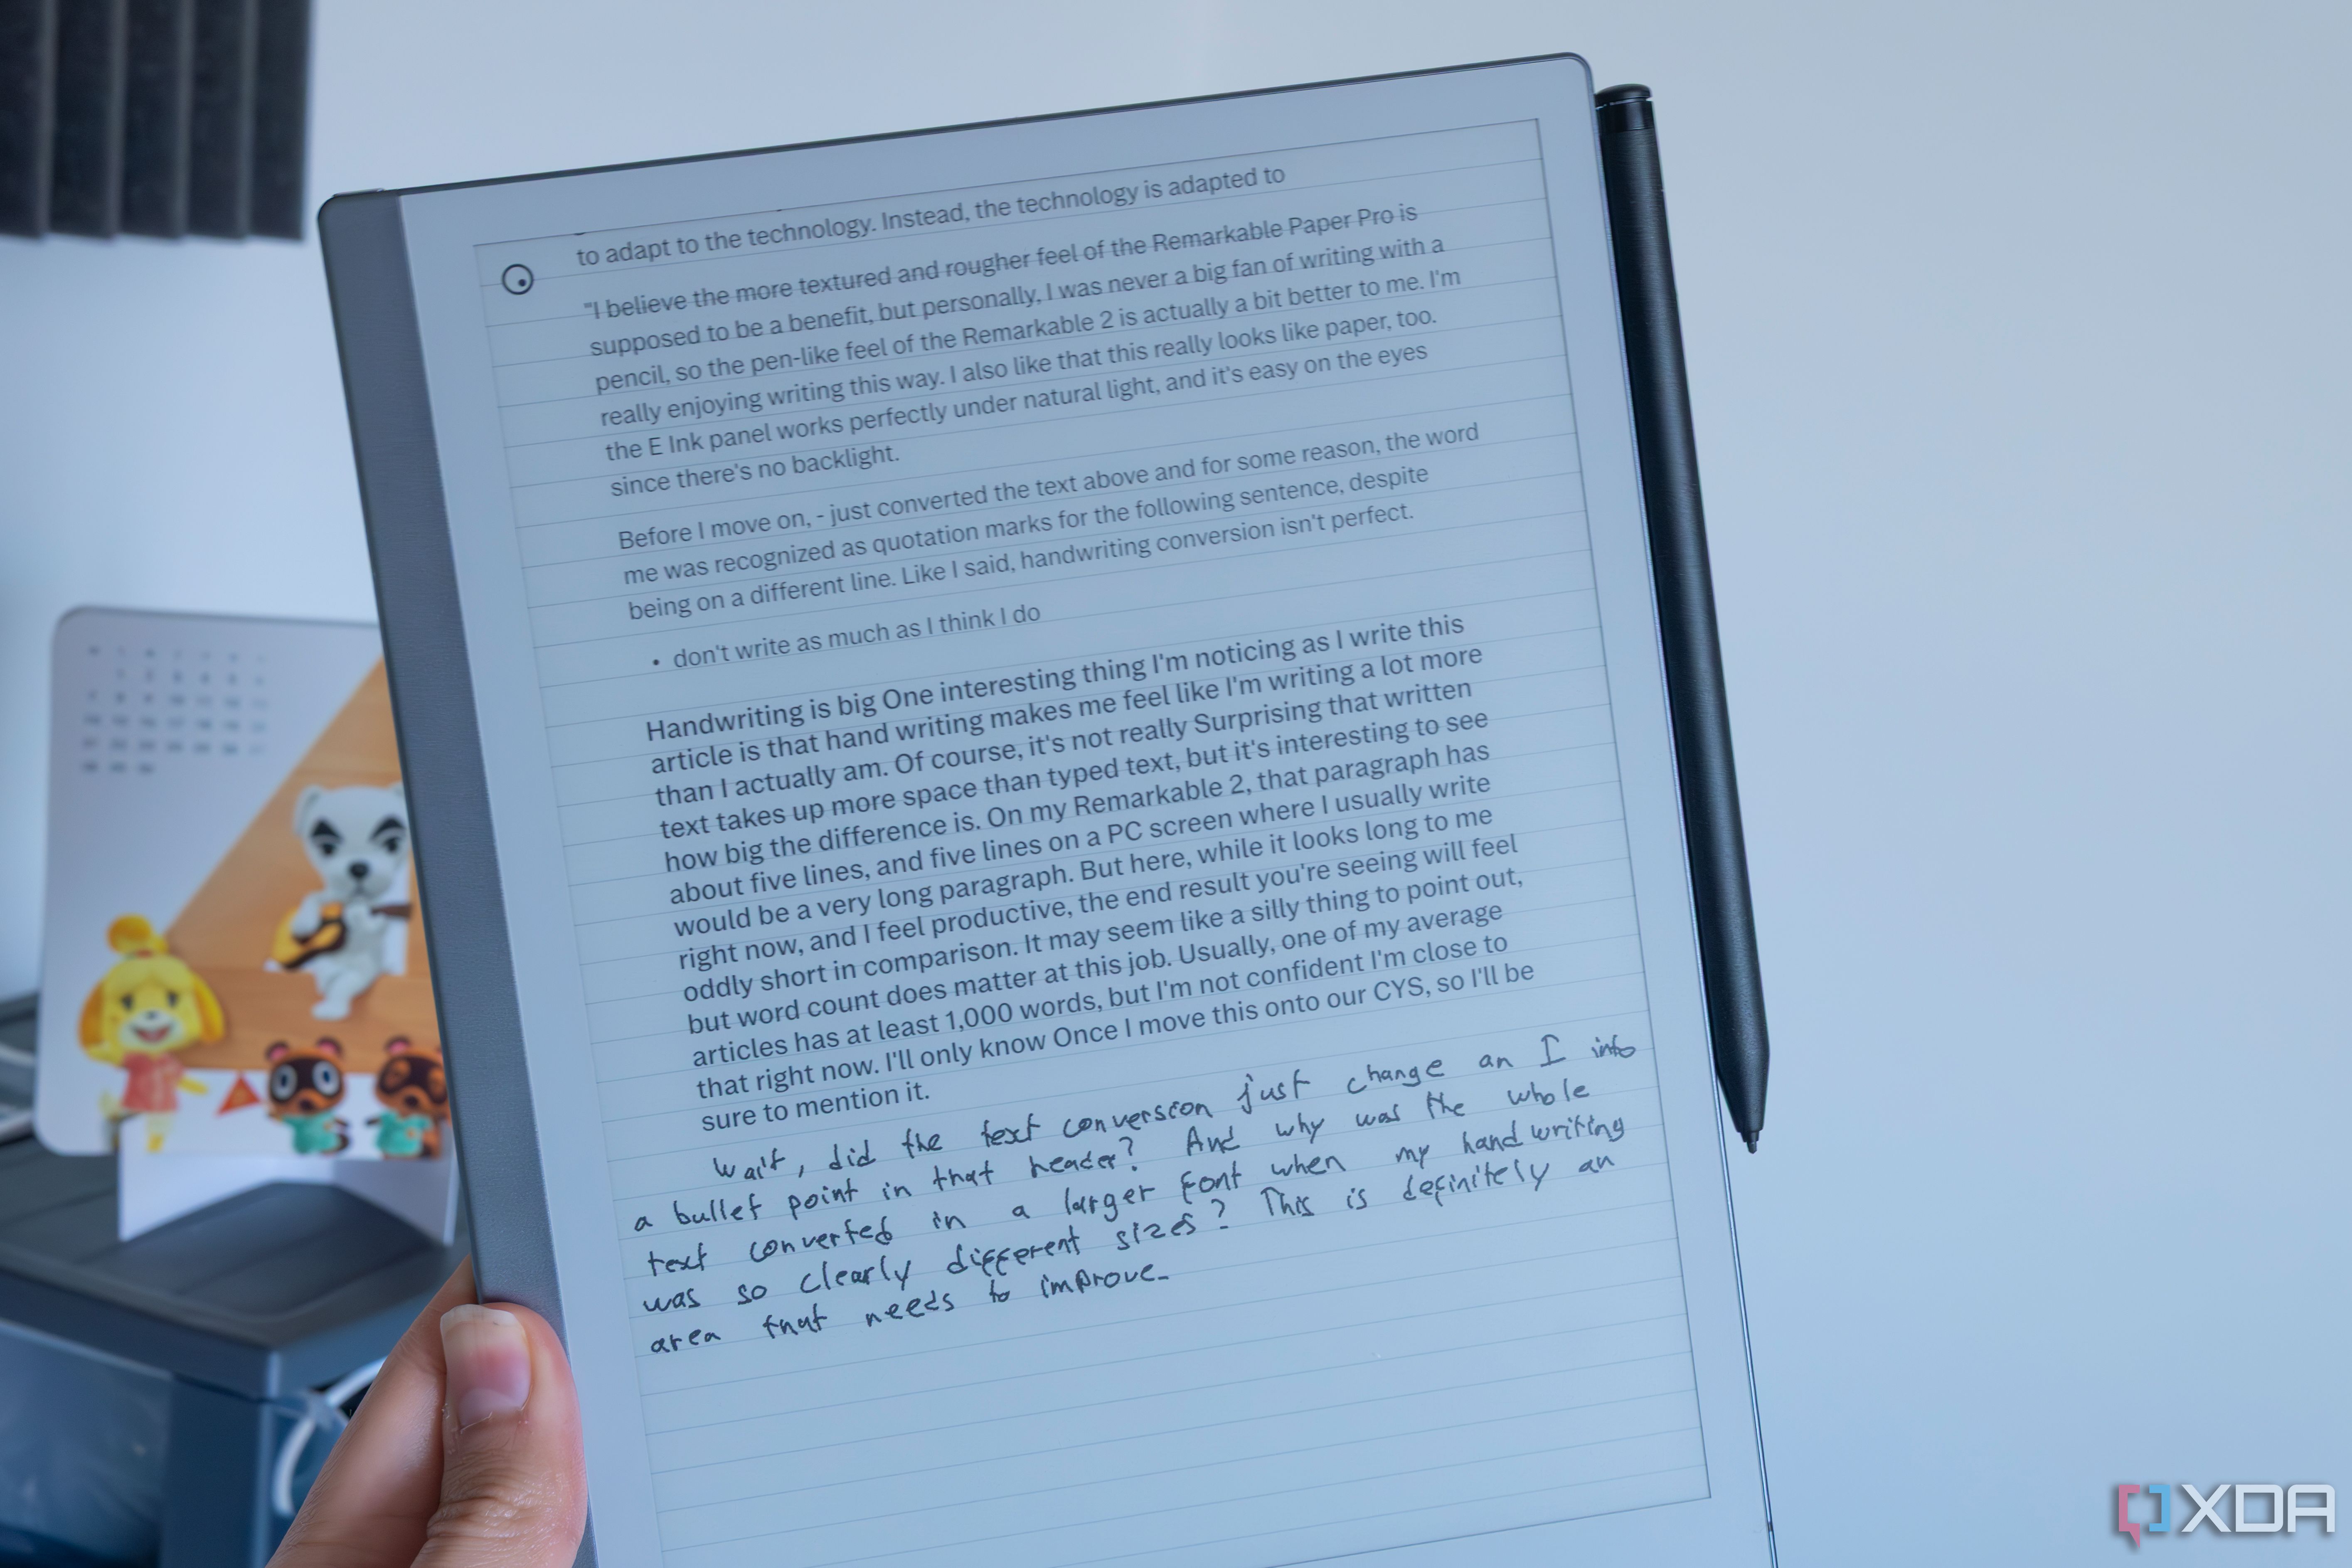 to adapt to the technology. Instead, the technology is adapted to
"I believe the more textured and rougher feel of the Remarkable Paper Pro is
supposed to be a benefit, but personally, I was never a big fan of writing with a
pencil, so the pen-like feel of the Remarkable 2 is actually a bit better to me. I'm
really enjoying writing this way. I also like that this really looks like paper, too.
the E Ink panel works perfectly under natural light, and it's easy on the eyes
since there's no backlight.
Before I move on, - just converted the text above and for some reason, the word
me was recognized as quotation marks for the following sentence, despite
being on a different line. Like I said, handwriting conversion isn't perfect.
• don't write as much as I think I do
Handwriting is big One interesting thing I'm noticing as I write this
article is that hand writing makes me feel like I'm writing a lot more
than I actually am. Of course, it's not really Surprising that written
text takes up more space than typed text, but it's interesting to see
how big the difference is. On my Remarkable 2, that paragraph has
about five lines, and five lines on a PC screen where I usually write
would be a very long paragraph. But here, while it looks long to me
right now, and I feel productive, the end result you're seeing will feel
oddly short in comparison. It may seem like a silly thing to point out,
but word count does matter at this job. Usually, one of my average
articles has at least 1,000 words, but I'm not confident I'm close to
that right now. I'll only know Once I move this onto our CYS, so I'll be
sure to mention it.
Wait, did the text conversion just change an I into
a bullet point in that header? And why was the whole
text converted in a larger font when my handwriting
was so clearly different sizes? This is definitely an
area that needs to improve.
XDA